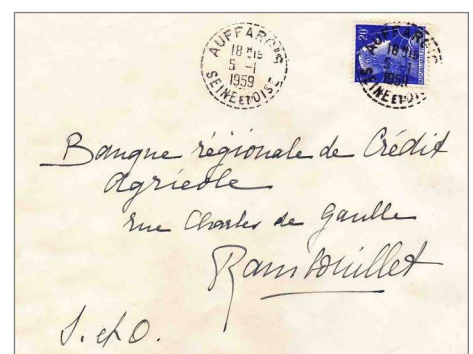 AUFFARGIS
18H15
5 -1
1959
SEINE ET OISE
20F
AUFFARGIS
18H15
5 -1
1959
SEINE ET OISE
Banque régionale de Crédit
Agricole
rue Charles de Gaulle
Rambouillet
S. et O.